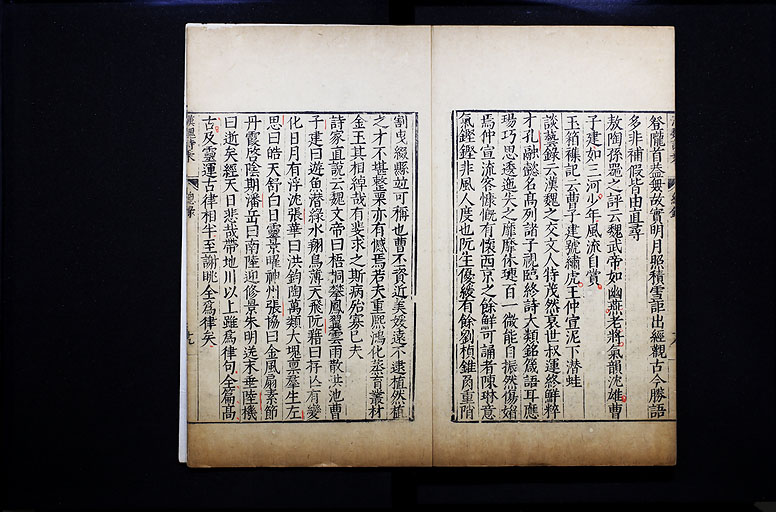 登隴首羌無故實明月照積雪詎出經觀古今勝語
多非補假皆由直尋
敖陶孫器之評云魏武帝如幽燕老將氣韻沈雄曹
子建如三河少年風流自賞
玉箱襍記云曹子建號繡虎王仲宣泥下潜蛙
談藝錄云漢魏之交文人特茂然衰世叔運終鮮粹
才孔融懿名髙列諸子視臨終詩大類銘箴語耳應
瑒巧思逶迤失之靡靡休璉百一微能自振然傷媚
焉仲宣流客慷慨有懷西京之餘鮮可誦者陳琳意
氣鏗鏗非風人度也阮生優緩有餘劉楨錐角重陗
割曳綴縣竝可稱也曹丕資近美媛遠不逮植然植
之才不堪整栗亦有憾焉若夫重熙鴻化蒸育叢材
金玉其相綽哉有斐求之斯病殆寡已夫
詩家直說云魏文帝曰梧桐攀鳳翼雲雨散洪池曹
子建曰遊魚潛綠水翔鳥薄天飛阮籍曰存亡有變
化日月有浮沈張華曰洪鈞陶萬類大塊禀羣生左
思曰皓天舒白日靈景曜神州張協曰金風扇素節
丹霞啓陰期潘岳曰南陸迎修景朱明送末垂陸機
曰逝矣經天日悲哉帶地川以上雖爲律句全篇髙
古及靈運古律相半至謝眺全爲律矣
漢魏詩乘
總錄
九